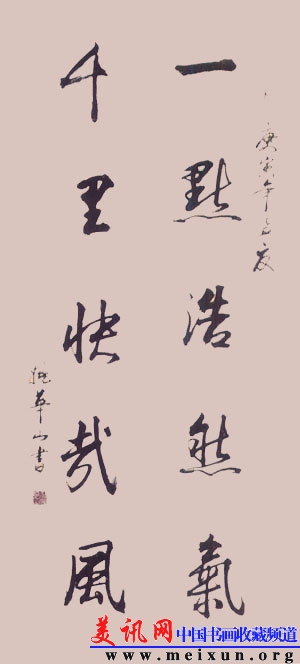 庚寅年之夏
一點浩然氣
千里快哉風
華山書
美讯网 中国书画收藏频道
www.meixun.org